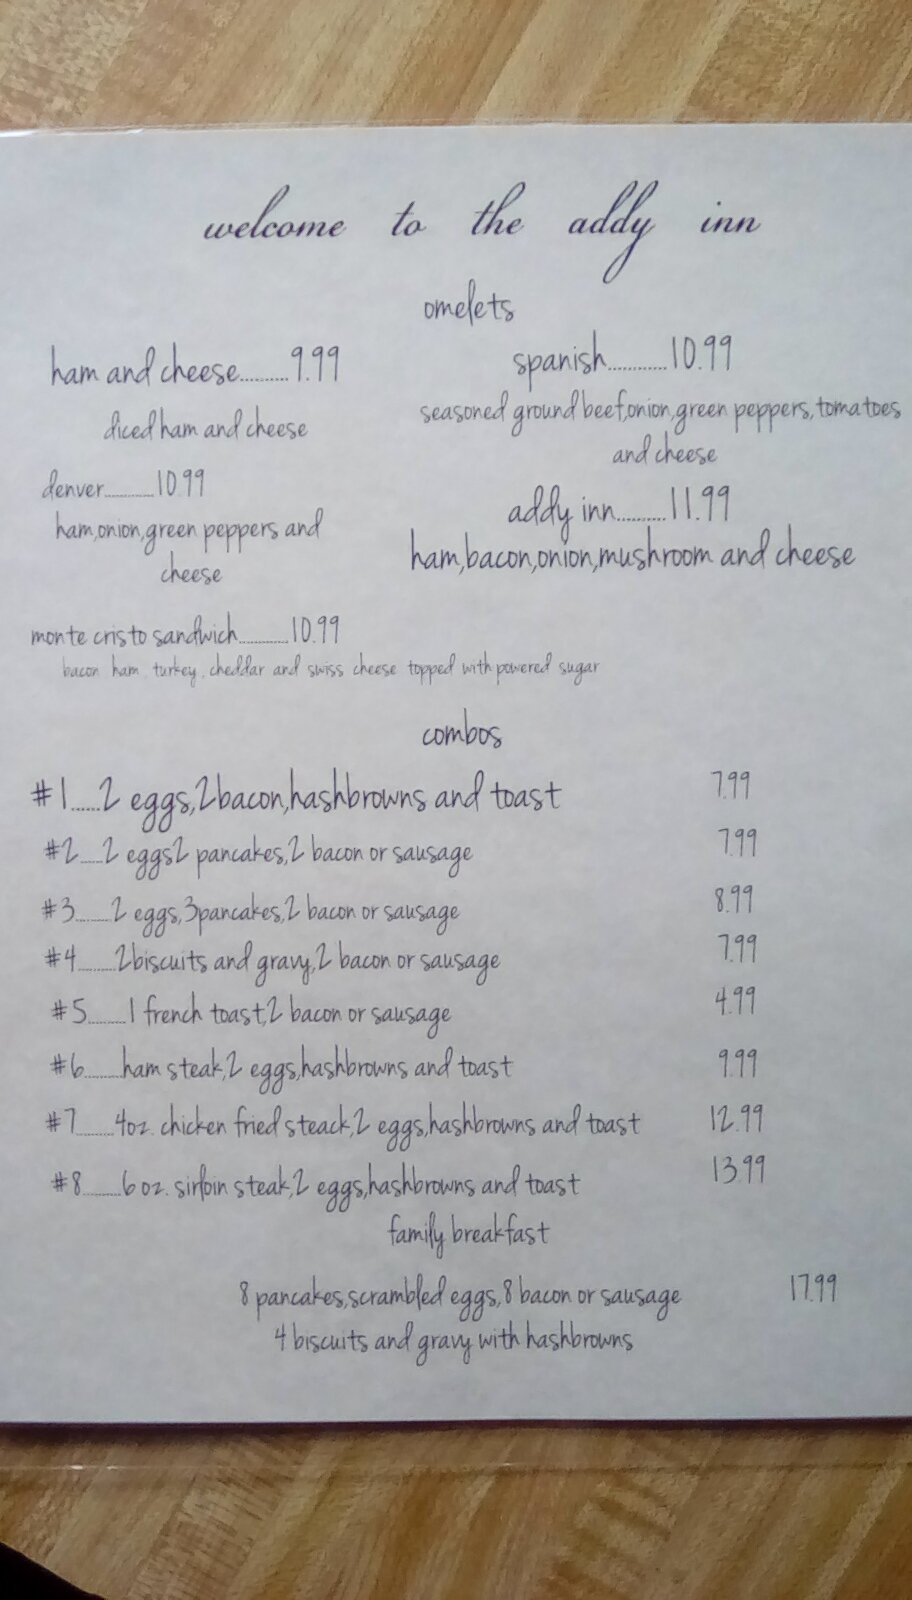 welcome to the addy inn
omelets
ham and cheese..........9.99
diced ham and cheese
denver..........10.99
ham,onion,green peppers and
cheese
spanish..........10.99
seasoned ground beef,onion,green peppers,tomatoes
and cheese
addy inn..........11.99
ham,bacon,onion,mushroom and cheese
monte cristo sandwich..........10.99
bacon ham , turkey , cheddar and swiss cheese topped with powered sugar
combos
#1......2 eggs,2bacon,hashbrowns and toast 7.99
#2......2 eggs2 pancakes,2 bacon or sausage 7.99
#3.......2 eggs,3pancakes,2 bacon or sausage 8.99
#4.......2biscuits and gravy,2 bacon or sausage 7.99
#5.......1 french toast,2 bacon or sausage 4.99
#6.......ham steak,2 eggs,hashbrowns and toast 9.99
#7.......4oz. chicken fried steack,2 eggs,hashbrowns and toast 12.99
#8.......6 oz. sirloin steak,2 eggs,hashbrowns and toast 13.99
family breakfast
8 pancakes,scrambled eggs,8 bacon or sausage 17.99
4 biscuits and gravy with hashbrowns